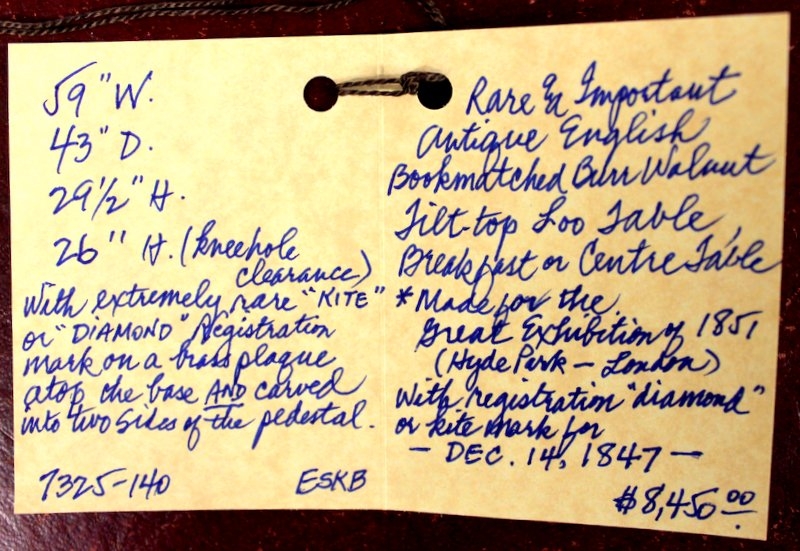 59" W.
43" D.
29 1/2" H.
26" H. (kneehole
clearance)
with extremely rare "KITE"
or "DIAMOND" Registration
mark on a brass plaque
atop the base AND carved
into two sides of the pedestal.
7325-140
ESKB
Rare & Important
Antique English
Bookmatched Burr Walnut
Tilt-top Loo Table,
Breakfast or Centre Table
* Made for the
Great Exhibition of 1851
(Hyde Park — London)
with registration "diamond"
or kite mark for
— DEC. 14, 1847 —
$8,450.00